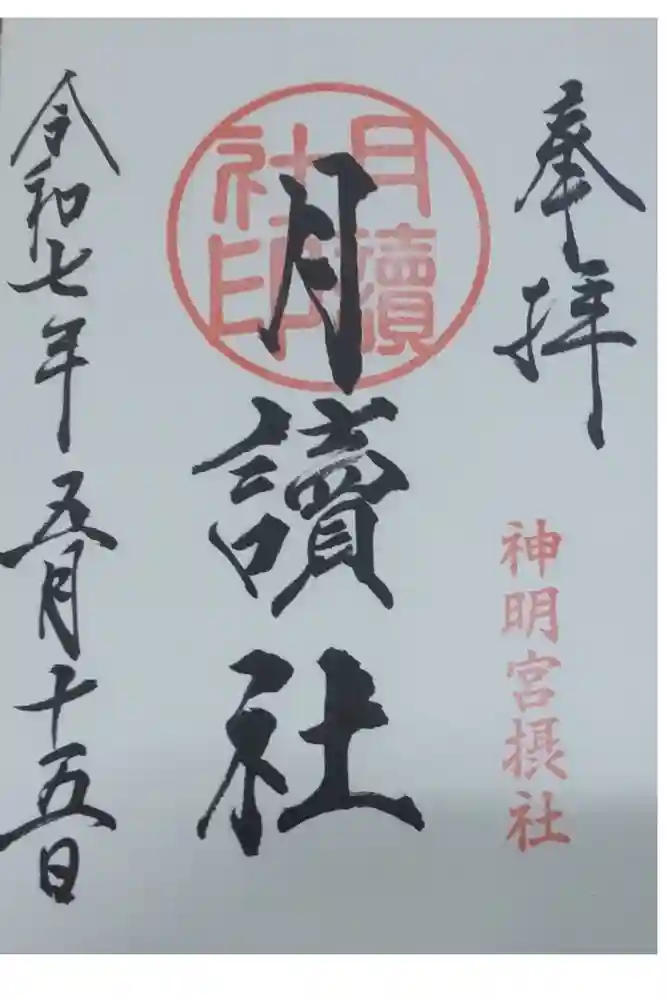 奉拝
神明宮摂社
月讀社印
月讀社
令和七年五月十五日